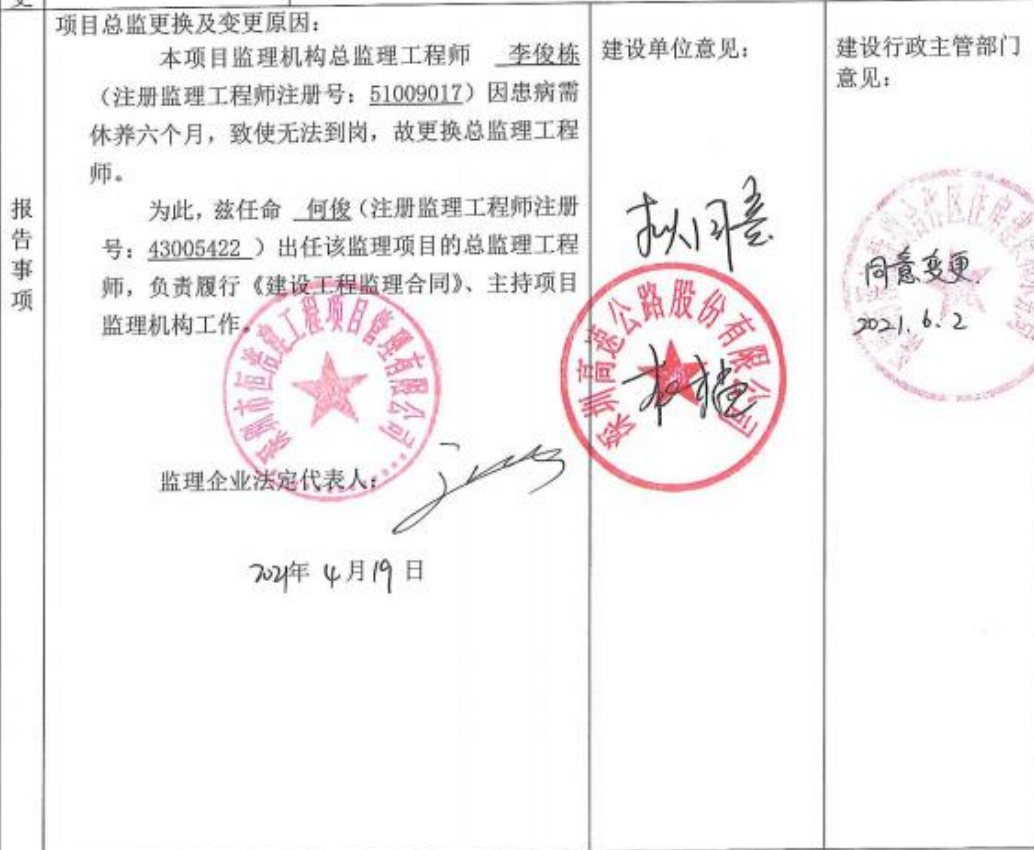 项目总监更换及变更原因：
本项目监理机构总监理工程师 李俊栋
（注册监理工程师注册号：51009017）因患病需
休养六个月，致使无法到岗，故更换总监理工程
师。
为此，兹任命 何俊（注册监理工程师注册
号：43005422 ）出任该监理项目的总监理工程
师，负责履行《建设工程监理合同》、主持项目
监理机构工作。
深圳市恒浩建工程项目管理有限公司
监理企业法定代表人：
2021年 4月19日
报
告
事
项
建设单位意见：
拟同意
深圳高速公路股份有限公司
建设行政主管部门
意见：
同意变更.
2021.6.2